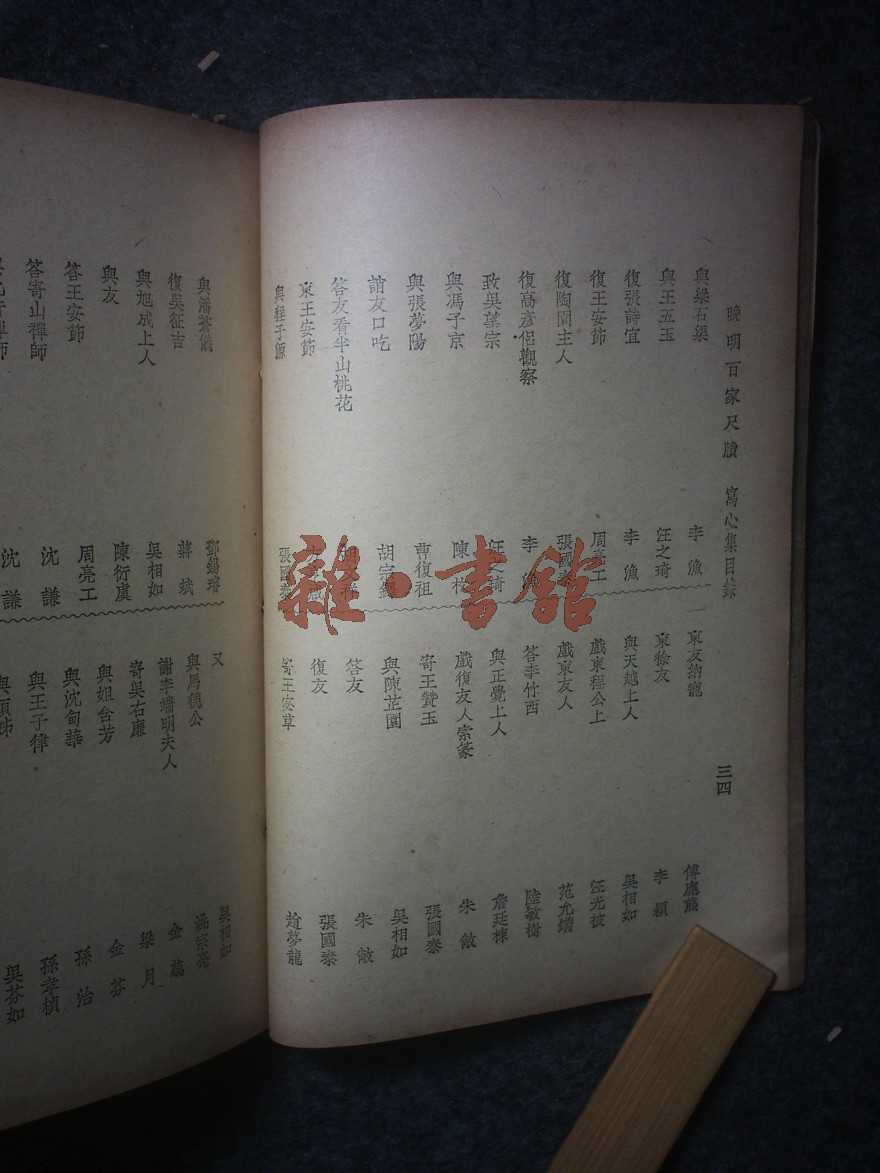 晚明百家尺牘 寫心集目錄
三四
與梁石渠 李漁
與王五玉 汪之琦
復張詩宜 李漁
復王安節 周亮工
復陶園主人 張國
復高彥侶觀察 李漁
致吳葉宗
與馮子京 陳
與張夢陽 曹復祖
誚友口吃 胡宗
答友看半山桃花
東王安節
與程子源 張國泰
東友納寵 傅應熊
東徐友 李穎
與天越上人 吳相如
戲東程公上 汪光被
戲東友人 范允鐠
答李竹西 陸敏樹
與正覺上人 詹廷棟
戲復友人索篆 朱敞
寄王贊玉 張國泰
與陳芷園 吳相如
答友 朱敞
復友 張國泰
寄王安草 趙夢龍
鄧錫璿
復吳征吉 蔣斌
與旭成上人 吳相如
與友 陳衍虞
答王安節 周亮工
答寄山禪師 沈謙
沈謙
又 吳相如
與馮德公
謝李檣明夫人 金
寄吳右廉 梁月
與姐舍芳 金芬
與沈甸華 孫治
與王子律 孫孝楨
吳芬如
雜·書館